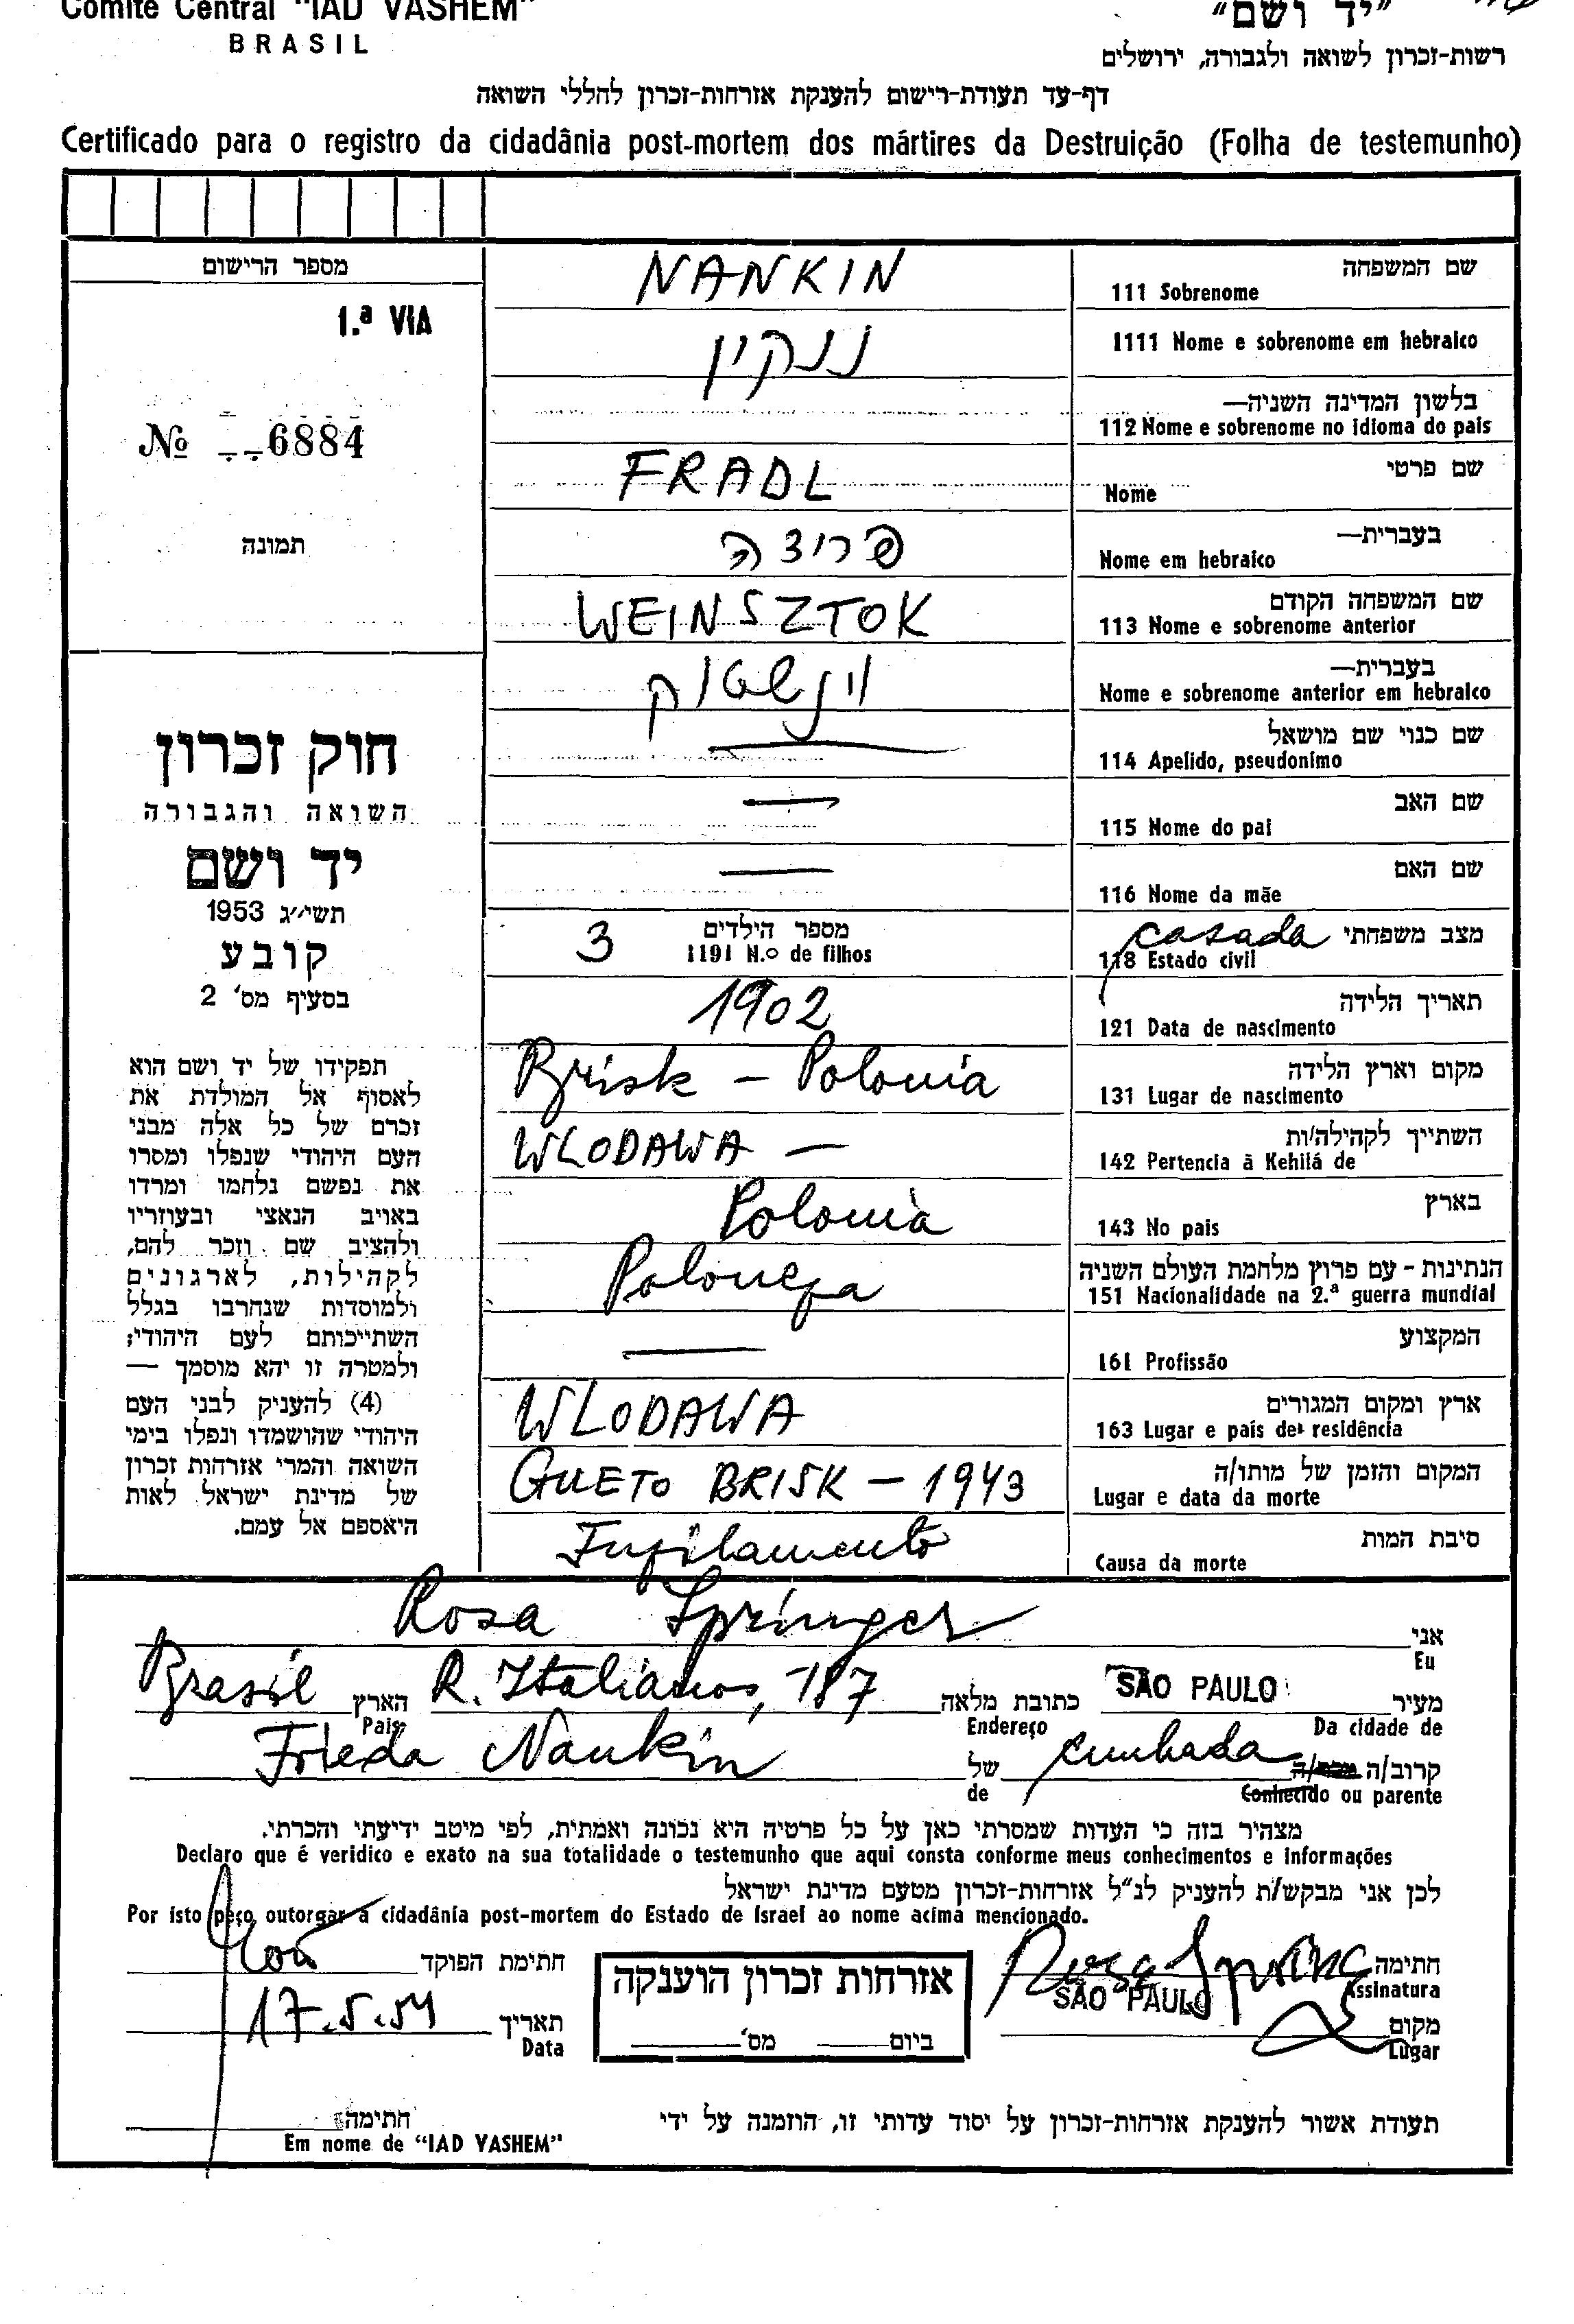 Comite Central "IAD VASHEM"
BRASIL
"יד ושם"
רשות-זכרון לשואה ולגבורה, ירושלים
דף-עד תעודת-רישום להענקת אזרחות-זכרון לחללי השואה
Certificado para o registro da cidadânia post-mortem dos mártires da Destruição (Folha de testemunho)
מספר הרישום
1.ª VIA
№ 6884
תמונה
חוק זכרון
השואה והגבורה
יד ושם
תשי״ג 1953
קובע
בסעיף מס' 2
תפקידו של יד ושם הוא
לאסוף אל המולדת את
זכרם של כל אלה מבני
העם היהודי שנפלו ומסרו
את נפשם נלחמו ומרדו
באויב הנאצי ובעוזריו
ולהציב שם וזכר להם,
לקהילות, לארגונים
ולמוסדות שנחרבו בגלל
השתייכותם לעם היהודי;
ולמטרה זו יהא מוסמך —
(4) להעניק לבני העם
היהודי שהושמדו ונפלו בימי
השואה והמרי אזרחות זכרון
של מדינת ישראל לאות
היאספם אל עמם.
שם המשפחה
111 Sobrenome NANKIN
1111 Nome e sobrenome em hebraico ננקין
בלשון המדינה השניה—
112 Nome e sobrenome no idioma do pais
שם פרטי
Nome FRADL
בעברית—
Nome em hebraico פרידה
שם המשפחה הקודם
113 Nome e sobrenome anterior WEINSZTOK
בעברית—
Nome e sobrenome anterior em hebraico וינשטוק
שם כנוי שם מושאל
114 Apelido, pseudonimo —
שם האב
115 Nome do pai —
שם האם
116 Nome da mãe —
מצב משפחתי casada
118 Estado civil
מספר הילדים
1191 N.o de filhos 3
תאריך הלידה
121 Data de nascimento 1902
מקום וארץ הלידה
131 Lugar de nascimento Brisk - Polonia
השתייך לקהילה/ות
142 Pertencia à Kehilá de WLODAWA —
בארץ
143 No pais Polonia
הנתינות - עם פרוץ מלחמת העולם השניה
151 Nacionalidade na 2.ª guerra mundial Poloneza
המקצוע
161 Profissão —
ארץ ומקום המגורים
163 Lugar e país de residência WLODAWA
המקום והזמן של מותו/ה
Lugar e data da morte GUETO BRISK - 1943
סיבת המות
Causa da morte Fusilamento
אני Rosa Springer
Eu
מעיר SÃO PAULO כתובת מלאה R. Italianos, 187 הארץ Brasil
Da cidade de Endereço Pais
קרוב/ה cunhada של Frieda Nankin
Conhecido ou parente de
מצהיר בזה כי העדות שמסרתי כאן על כל פרטיה היא נכונה ואמתית, לפי מיטב ידיעתי והכרתי.
Declaro que é veridico e exato na sua totalidade o testemunho que aqui consta conforme meus conhecimentos e informações
לכן אני מבקש/ת להעניק לנ"ל אזרחות-זכרון מטעם מדינת ישראל
Por isto peço outorgar a cidadânia post-mortem do Estado de Israel ao nome acima mencionado.
חתימה Rosa Springer
Assinatura
מקום SÃO PAULO
Lugar
אזרחות זכרון הוענקה
ביום מס'
חתימת הפוקד
תאריך 17.5.54
Data
תעודת אשור להענקת אזרחות-זכרון על יסוד עדותי זו, הוזמנה על ידי
חתימה
Em nome de "IAD VASHEM"